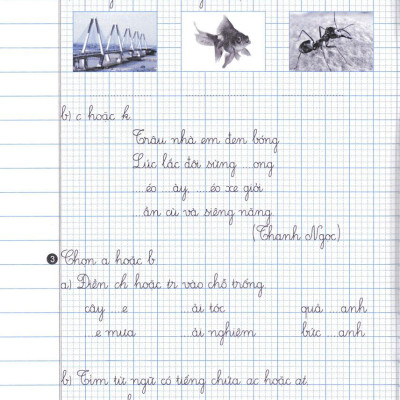 b) c hoặc k
Trâu nhà em đen bóng
Lúc lắc đôi sừng ...ong
...éo ...ày, ...éo xe giỏi
...ần cù và siêng năng
(Thanh Ngọc)
3 Chọn a hoặc b
a) Điền ch hoặc tr vào chỗ trống
cây ...e ...ải tóc quả ...anh
...e mưa ...ải nghiệm bức ...anh
b) Tìm từ ngữ có tiếng chứa ac hoặc at.